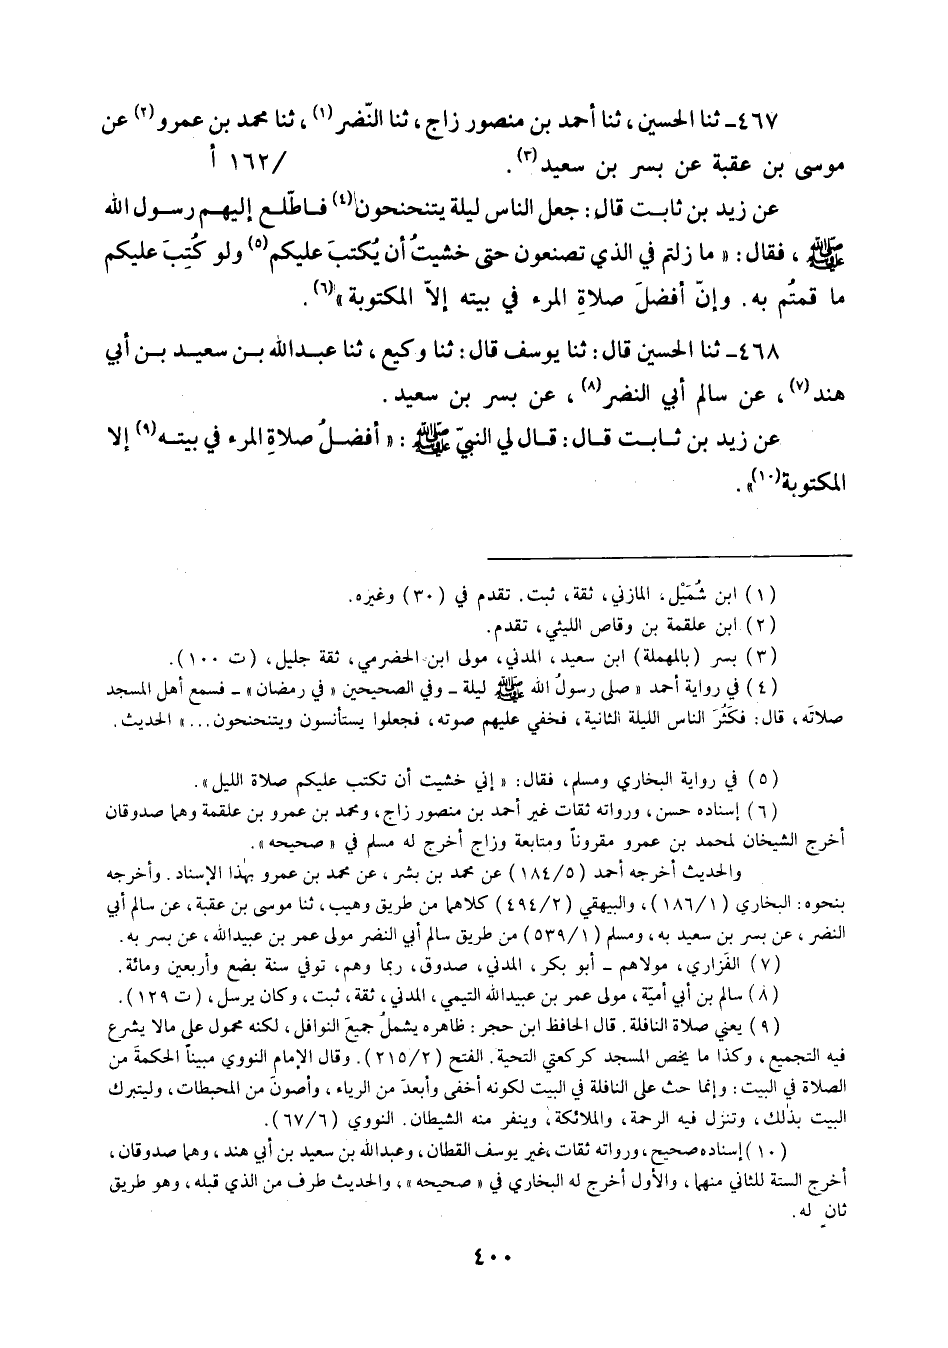 ٤٦٧ـ ثنا الحسين، ثنا أحمد بن منصور زاج، ثنا النّضر(١)، ثنا محمد بن عمرو(٢) عن
موسى بن عقبة عن بسر بن سعيد(٣). /١٦٢ أ
عن زيد بن ثابت قال: جعل الناس ليلة يتنحنحون(٤) فاطّلع إليهم رسول الله
ﷺ، فقال: « ما زلتم في الذي تصنعون حتى خشيتُ أن يُكتبَ عليكم(٥) ولو كُتِبَ عليكم
ما قمتُم به. وإنّ أفضلَ صلاةِ المرء في بيته إلاّ المكتوبة »(٦).
٤٦٨ـ ثنا الحسين قال: ثنا يوسف قال: ثنا وكيع، ثنا عبدالله بن سعيد بن أبي
هند(٧)، عن سالم أبي النضر(٨)، عن بسر بن سعيد.
عن زيد بن ثابت قال: قال لي النبيّ ﷺ: « أفضلُ صلاةِ المرء في بيته(٩) إلا
المكتوبة(١٠)».
(١) ابن شُمَيْل، المازني، ثقة، ثبت. تقدم في (٣٠) وغيره.
(٢) ابن علقمة بن وقاص الليثي، تقدم.
(٣) بسر (بالمهملة) ابن سعيد، المدني، مولى ابن الحضرمي، ثقة جليل، (ت ١٠٠).
(٤) في رواية أحمد « صلى رسولُ الله ﷺ ليلة ـ وفي الصحيحين « في رمضان» ـ فسمع أهل المسجد
صلاتَه، قال: فكَثُرَ الناس الليلة الثانية، فخفي عليهم صوته، فجعلوا يستأنسون ويتنحنحون...» الحديث.
(٥) في رواية البخاري ومسلم، فقال: « إني خشيت أن تكتب عليكم صلاة الليل».
(٦) إسناده حسن، ورواته ثقات غير أحمد بن منصور زاج، ومحمد بن عمرو بن علقمة وهما صدوقان
أخرج الشيخان لمحمد بن عمرو مقروناً ومتابعة وزاج أخرج له مسلم في « صحيحه».
والحديث أخرجه أحمد (١٨٤/٥) عن محمد بن بشر، عن محمد بن عمرو بهٰذا الإسناد. وأخرجه
بنحوه: البخاري (١٨٦/١)، والبيهقي (٤٩٤/٢) كلاهما من طريق وهيب، ثنا موسى بن عقبة، عن سالم أبي
النضر، عن بسر بن سعيد به، ومسلم (٥٣٩/١) من طريق سالم أبي النضر مولى عمر بن عبيدالله، عن بسر به.
(٧) الفَزاري، مولاهم ـ أبو بكر، المدني، صدوق، ربما وهم، توفي سنة بضع وأربعين ومائة.
(٨) سالم بن أبي أميّة، مولى عمر بن عبيدالله التيمي، المدني، ثقة، ثبت، وكان يرسل، (ت ١٢٩).
(٩) يعني صلاة النافلة. قال الحافظ ابن حجر: ظاهره يشملُ جميعَ النوافل، لكنه محمول على مالا يشرع
فيه التجميع، وكذا ما يخص المسجد كركعتي التحية. الفتح (٢١٥/٢). وقال الإمام النووي مبيناً الحكمةَ من
الصلاة في البيت: وإنما حث على النافلة في البيت لكونه أخفى وأبعدَ من الرياء، وأصونَ من المحبطات، وليتبرك
البيت بذلك، وتنزل فيه الرحمة، والملائكة، وينفر منه الشيطان. النووي (٦٧/٦).
(١٠) إسناده صحيح، ورواته ثقات، غير يوسف القطان، وعبدالله بن سعيد بن أبي هند، وهما صدوقان،
أخرج الستة للثاني منهما، والأول أخرج له البخاري في « صحيحه»، والحديث طرف من الذي قبله، وهو طريق
ثانٍ له.
٤٠٠